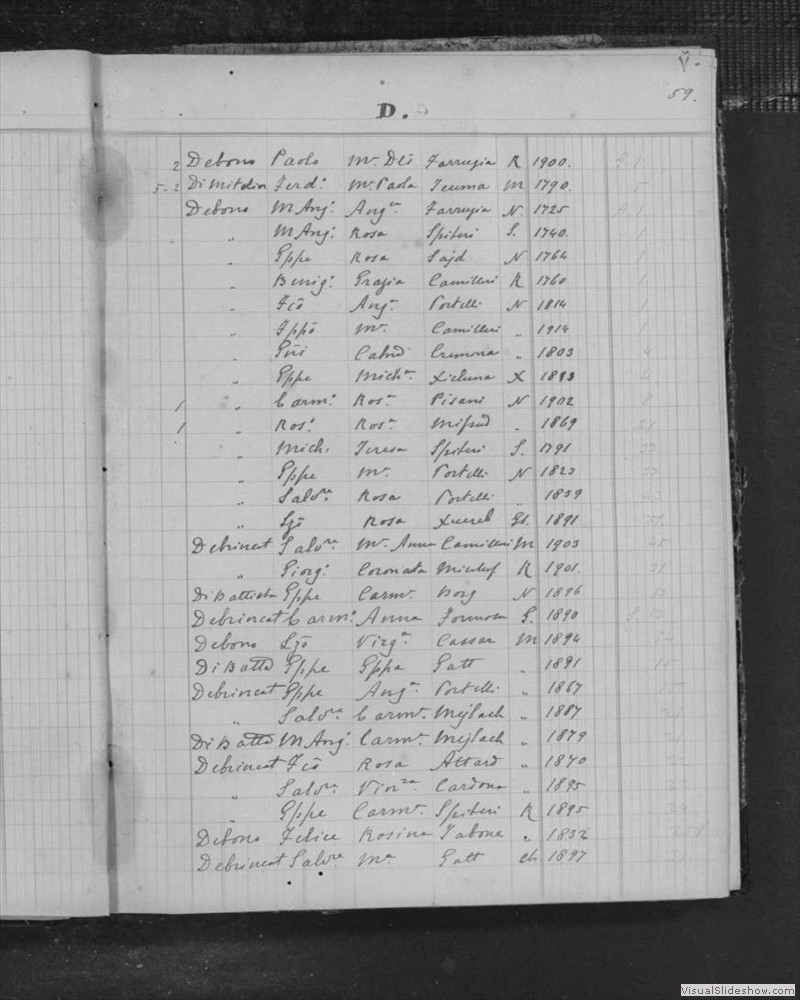 V.
59.
D.
2 Debono Paolo Mª. Dlã Farrugia R 1900.
5-2 Ferdº. Mª. Paola Teuma M 1790.
Debono M Angº. Angª Farrugia N. 1725
„ M Angº. Rosa Spiteri S. 1740.
„ Gppe Rosa Sajd N 1764
„ Benigº. Grazia Camilleri R 1760
„ Fcõ Angª. Portelli N 1814
„ Fppõ Mª. Camilleri „ 1914
„ Gñi Cremona „ 1803
„ Gppe Michª. Xicluna X
1 „ Carmº. Rosª. Pisani N 1902
1 „ Rosº. Rosª. Mifsud „ 1869
„ Mich. Teresa Spiteri S. 1791
„ Gppe Mª. Portelli N 1823
„ Salvʳᵉ Rosa Portelli „ 1839
„ Ljõ Rosa Xuereb Gh. 1891
Debrincat Salvʳᵉ Mª. Anna Camilleri M 1903
„ Giorgº. Coronata Micallef R 1901.
DiBattista Gppe Carmª. Borg N 1896
Debrincat Carmº. Anna Formosa G. 1890
Debono Ljõ Virgª Cassar M 1894
DiBattã Gppe Gppa Gatt „ 1891
Debrincat Gppe Angª. Portelli „ 1867
„ Salvʳᵉ Carmª. Mejlach „ 1887
DiBattã M Angº. Carmª. Mejlach „ 1879
Debrincat Fcõ Rosa Attard „ 1870
„ Salvʳᵉ Vinᶻᵃ Cardona „ 1895
„ Gppe Carmª. Spiteri R 1895
Debono Felice Rosina Tabone „ 1832
Debrincat Salvʳᵉ Mª Gatt ch 1897
VisualSlideshow.com